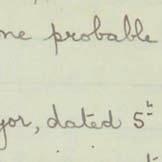 ne probable
yor, dated 5th